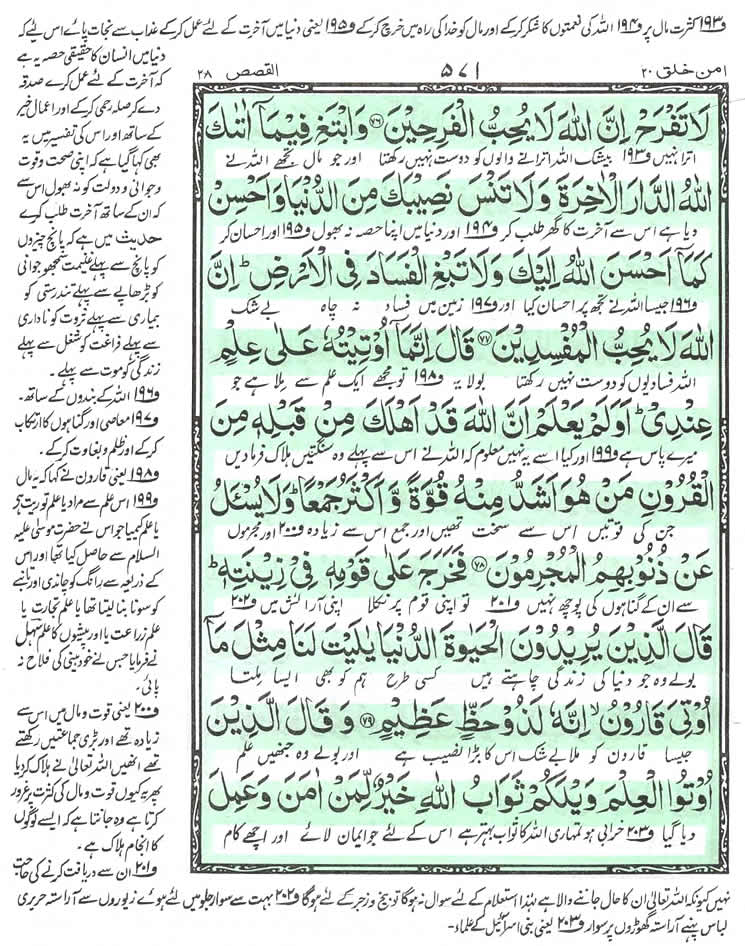 و۱۹۳ کثرت مال پر و۱۹۴ اللہ کی نعمتوں کا شکر کرکے اور مال کو خدا کی راہ میں خرچ کرکے و۱۹۵ یعنی دنیا میں آخرت کے لئے عمل کر کے عذاب سے نجات پائے اس لئے کہ
دنیا میں انسان کا حقیقی حصہ یہ ہے
کہ آخرت کے لئے عمل کرے صدقہ
دے کر صلہ رحمی کرکے اور اعمال خیر
کے ساتھ اور اس کی تفسیر میں یہ
بھی کہا گیا ہے کہ اپنی صحت و قوت
و جوانی و دولت کو نہ بھول اس سے
کہ ان کے ساتھ آخرت طلب کرے
حدیث میں ہے کہ پانچ چیزوں
کو پانچ سے پہلے غنیمت سمجھو جوانی
کو بڑھاپے سے پہلے تندرستی کو
بیماری سے پہلے ثروت کو ناداری
سے پہلے فراغت کو شغل سے پہلے
زندگی کو موت سے پہلے۔
و۱۹۶ اللہ کے بندوں کے ساتھ۔
و۱۹۷ معاصی اور گناہوں کا ارتکاب
کرکے اور ظلم و بغاوت کرکے۔
و۱۹۸ یعنی قارون نے کہا کہ یہ مال
و۱۹۹ اس علم سے مراد یا علم توریت ہے
یا علم کیمیا جو اس نے حضرت موسیٰ علیہ
السلام سے حاصل کیا تھا اور اس
کے ذریعہ سے رانگ کو چاندی اور تانبے
کو سونا بنا لیتا تھا یا علم تجارت یا
علم زراعت یا اور پیشوں کا علم سہل
نے فرمایا جس نے خود بینی کی فلاح نہ
پائی۔
و۲۰۰ یعنی قوت و مال میں اس سے
زیادہ تھے اور بڑی جماعتیں رکھتے
تھے انھیں اللہ تعالیٰ نے ہلاک کردیا
پھر یہ کیوں قوت و مال کی کثرت پر غرور
کرتا ہے وہ جانتا ہے کہ ایسے لوگوں
کا انجام ہلاک ہے۔
و۲۰۱ ان سے دریافت کرنے کی حاجت
امن خلق ۲۰
۵۷۱
القصص ۲۸
لَا تَفْرَحْ اِنَّ اللّٰهَ لَا یُحِبُّ الْفَرِحِیْنَ ﴿۷۶﴾ وَ ابْتَغِ فِیْمَاۤ اٰتٰىكَ
اترا نہیں و۱۹۳ بیشک اللہ اترانے والوں کو دوست نہیں رکھتا اور جو مال تجھے اللہ نے
اللّٰهُ الدَّارَ الْاٰخِرَةَ وَ لَا تَنْسَ نَصِیْبَكَ مِنَ الدُّنْیَا وَ اَحْسِنْ
دیا ہے اس سے آخرت کا گھر طلب کر و۱۹۴ اور دنیا میں اپنا حصہ نہ بھول و۱۹۵ اور احسان کر
كَمَاۤ اَحْسَنَ اللّٰهُ اِلَیْكَ وَ لَا تَبْغِ الْفَسَادَ فِی الْاَرْضِ ؕ اِنَّ
و۱۹۶ جیسا اللہ نے تجھ پر احسان کیا اور و۱۹۷ زمین میں فساد نہ چاہ بے شک
اللّٰهَ لَا یُحِبُّ الْمُفْسِدِیْنَ ﴿۷۷﴾ قَالَ اِنَّمَاۤ اُوْتِیْتُهٗ عَلٰى عِلْمٍ
اللہ فسادیوں کو دوست نہیں رکھتا بولا یہ و۱۹۸ تو مجھے ایک علم سے ملا ہے جو
عِنْدِیْ ؕ اَوَ لَمْ یَعْلَمْ اَنَّ اللّٰهَ قَدْ اَهْلَكَ مِنْ قَبْلِهٖ مِنَ
میرے پاس ہے و۱۹۹ اور کیا اسے یہ نہیں معلوم کہ اللہ نے اس سے پہلے وہ سنگتیں ہلاک فرمادیں
الْقُرُوْنِ مَنْ هُوَ اَشَدُّ مِنْهُ قُوَّةً وَّ اَكْثَرُ جَمْعًا ؕ وَ لَا یُسْــٴَـلُ
جن کی قوتیں اس سے سخت تھیں اور جمع اس سے زیادہ و۲۰۰ اور مجرموں
عَنْ ذُنُوْبِهِمُ الْمُجْرِمُوْنَ ﴿۷۸﴾ فَخَرَجَ عَلٰى قَوْمِهٖ فِیْ زِیْنَتِهٖ ؕ
سے ان کے گناہوں کی پوچھ نہیں و۲۰۱ تو اپنی قوم پر نکلا اپنی آرائش میں و۲۰۲
قَالَ الَّذِیْنَ یُرِیْدُوْنَ الْحَیٰوةَ الدُّنْیَا یٰلَیْتَ لَنَا مِثْلَ مَاۤ
بولے وہ جو دنیا کی زندگی چاہتے ہیں کسی طرح ہم کو بھی ایسا ملتا
اُوْتِیَ قَارُوْنُ ۙ اِنَّهٗ لَذُوْ حَظٍّ عَظِیْمٍ ﴿۷۹﴾ وَ قَالَ الَّذِیْنَ
جیسا قارون کو ملا بے شک اس کا بڑا نصیب ہے اور بولے وہ جنھیں علم
اُوْتُوا الْعِلْمَ وَیْلَكُمْ ثَوَابُ اللّٰهِ خَیْرٌ لِّمَنْ اٰمَنَ وَ عَمِلَ
دیا گیا و۲۰۳ خرابی ہو تمہاری اللہ کا ثواب بہتر ہے اس کے لئے جو ایمان لائے اور اچھے کام
نہیں کیونکہ اللہ تعالیٰ ان کا حال جاننے والا ہے لہٰذا استعلام کے لئے سوال نہ ہوگا توبیخ و زجر کے لئے ہوگا و۲۰۲ بہت سے سوار جلو میں لئے ہوئے زیوروں سے آراستہ حریری
لباس پہنے آراستہ گھوڑوں پر سوار و۲۰۳ یعنی بنی اسرائیل کے علماء۔